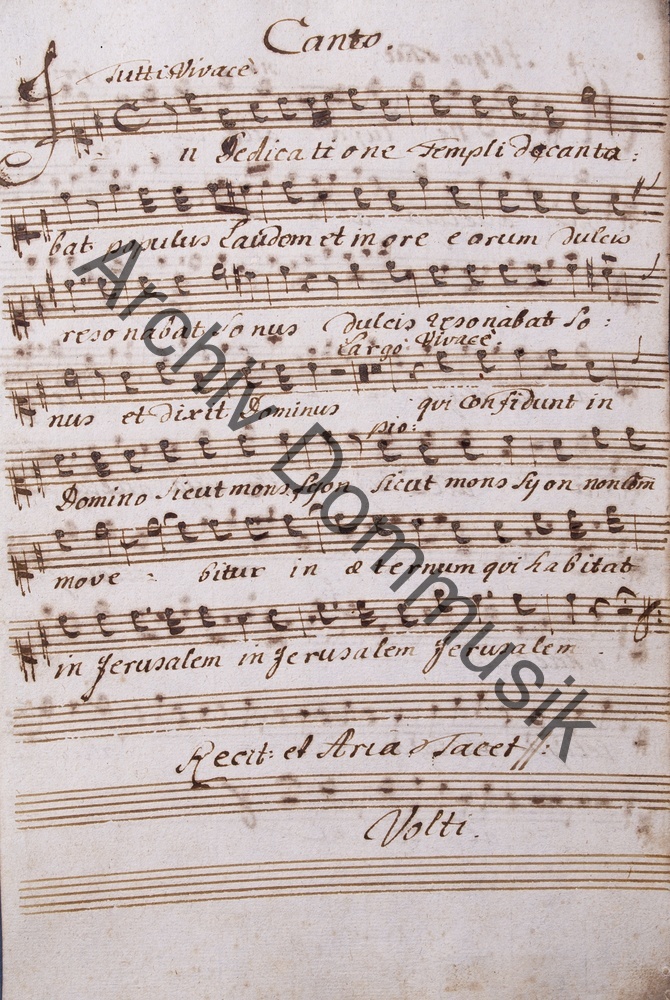 Canto.
Tutti Vivace
In Dedicatione Templi decanta:
bat populus Laudem et in ore eorum dulcis
resonabat sonus dulcis resonabat so:
Largo Vivace.
nus et dixit Dominus qui confidunt in
pio:
Domino sicut mons Syon sicut mons Syon non com
move - bitur in æternum qui habitat
in Jerusalem in Jerusalem Jerusalem
Recit: et Aria Tacet //:
Volti.
Archiv Dommusik